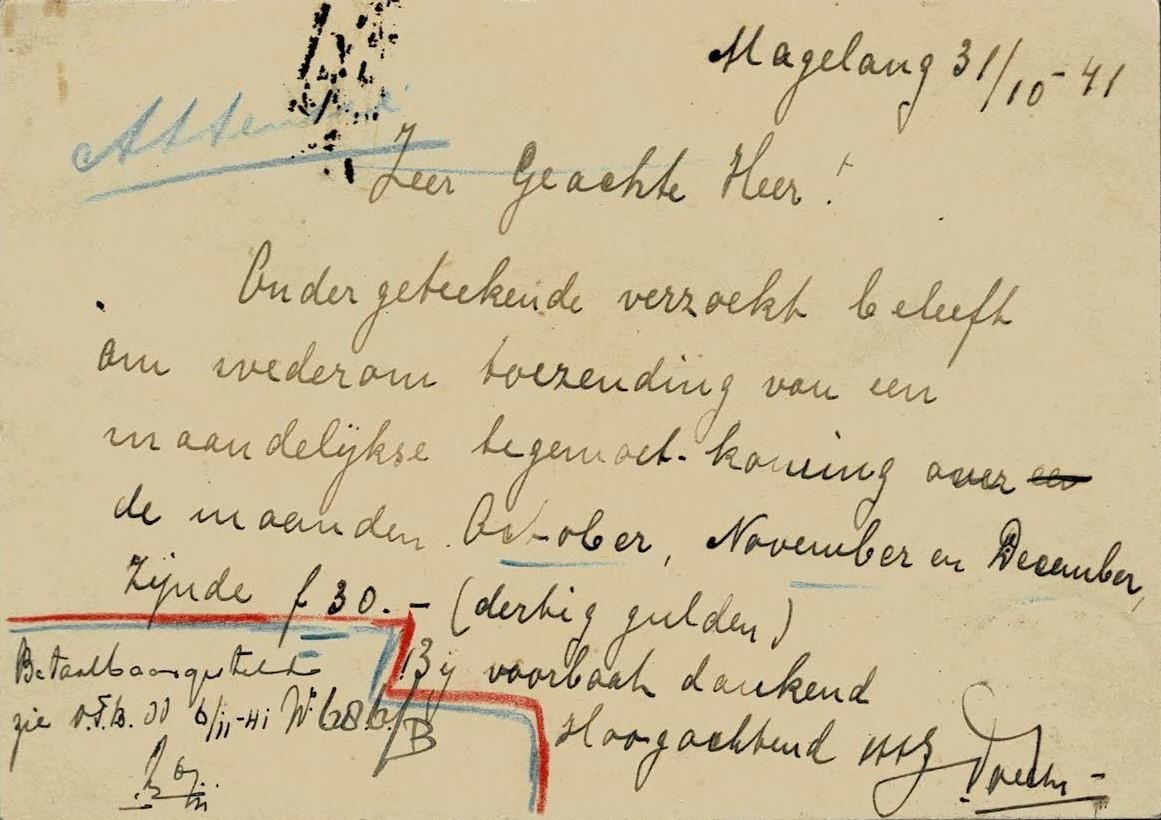 Magelang 31/10-41
Zeer Geachte Heer!
Ondergeteekende verzoekt beleeft
om wederom toezending van een
maandelijkse tegemoet-koming over
de maanden October, November en December,
Zijnde f 30.- (dertig gulden)
Bij voorbaat dankend
Hoogachtend
Betaalbaargesteld
zie 6/11-41